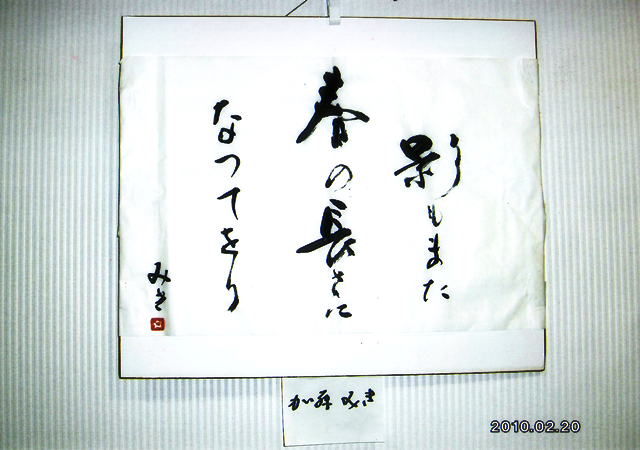 影もまた
春の長さに
なつてをり
みき
加藤 みき
2010.02.20